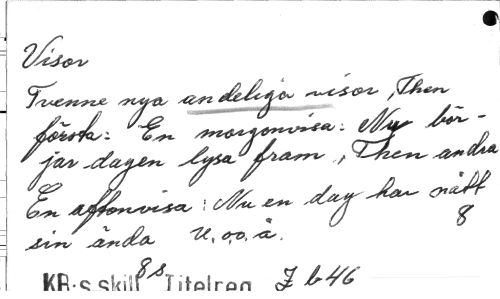 Visor
Tvenne nya andeliga visor, Then
första: En morgonvisa: Nu bör-
jar dagen lysa fram, Then andra
En aftonvisa: Nu en day har nått
sin ända U.o.o.å. 8
8 s.
KB:s skill Titelreg J b 46